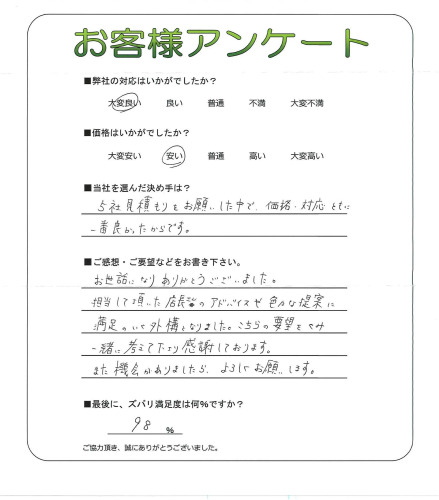 お客様アンケート
■弊社の対応はいかがでしたか？
大変良い 良い 普通 不満 大変不満
■価格はいかがでしたか？
大変安い 安い 普通 高い 大変高い
■当社を選んだ決め手は？
5社見積もりをお願いした中で、価格・対応ともに
一番良かったからです。
■ご感想・ご要望などをお書き下さい。
お世話になりありがとうございました。
担当して頂いた店長さんのアドバイスや色々な提案に
満足のいく外構となりました。こちらの要望を
一緒に考えて下さり感謝しております。
また機会がありましたら、よろしくお願いします。
■最後に、ズバリ満足度は何%ですか？
98 %
ご協力頂き、誠にありがとうございました。